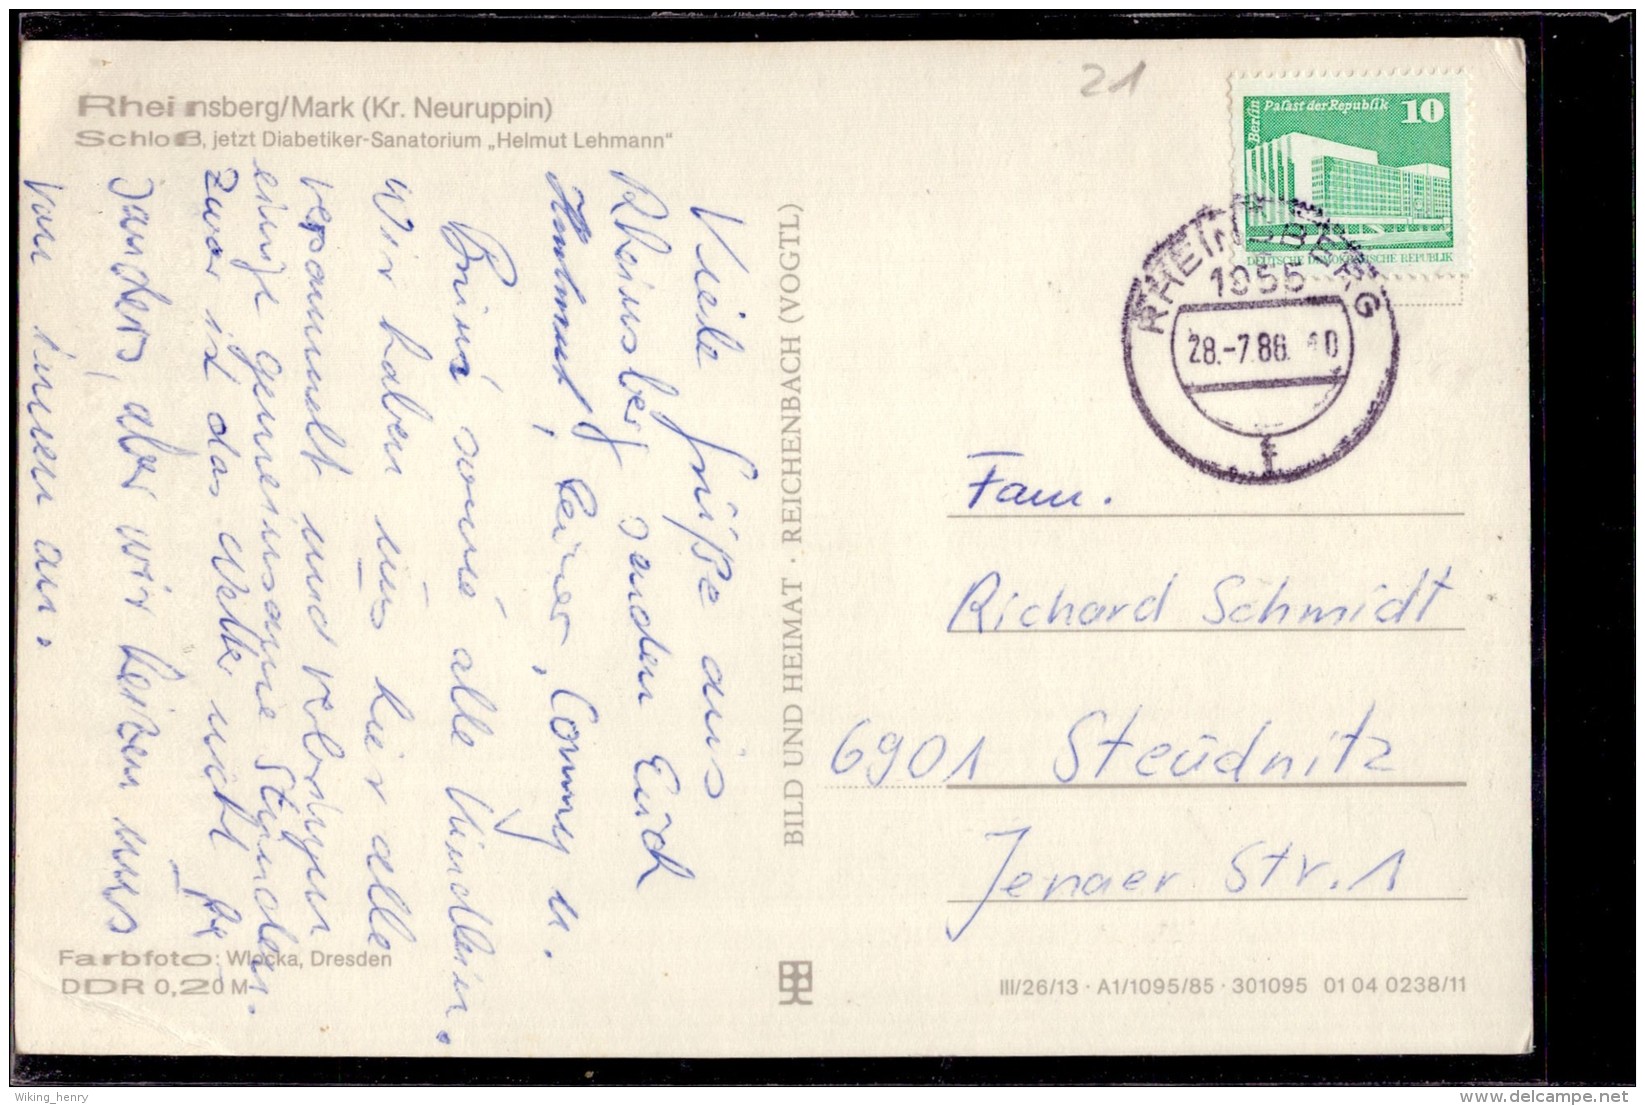 Rheinsberg/Mark (Kr. Neuruppin)
Schloß, jetzt Diabetiker-Sanatorium „Helmut Lehmann"
21
Berlin
Palast der Republik
10
DEUTSCHE DEMOKRATISCHE REPUBLIK
RHEINSBERG
1955
28.-7.86.
Viele Grüße aus
Rheinsberg senden Euch
Hartmut, Conny u.
sowie alle Kindlein.
Wir haben uns hier alle
versammelt und verbringen
einige gemeinsame Stunden.
Zwar ist das Wetter nicht
anders, aber wir heizen uns
von innen an.
BILD UND HEIMAT · REICHENBACH (VOGTL)
Fam.
Richard Schmidt
6901 Steudnitz
Jenaer Str. 1
Farbfoto: Wlocka, Dresden
DDR 0,20 M
III/26/13 · A1/1095/85 · 301095 01 04 0238/11
Wiking_henry
delcampe.net